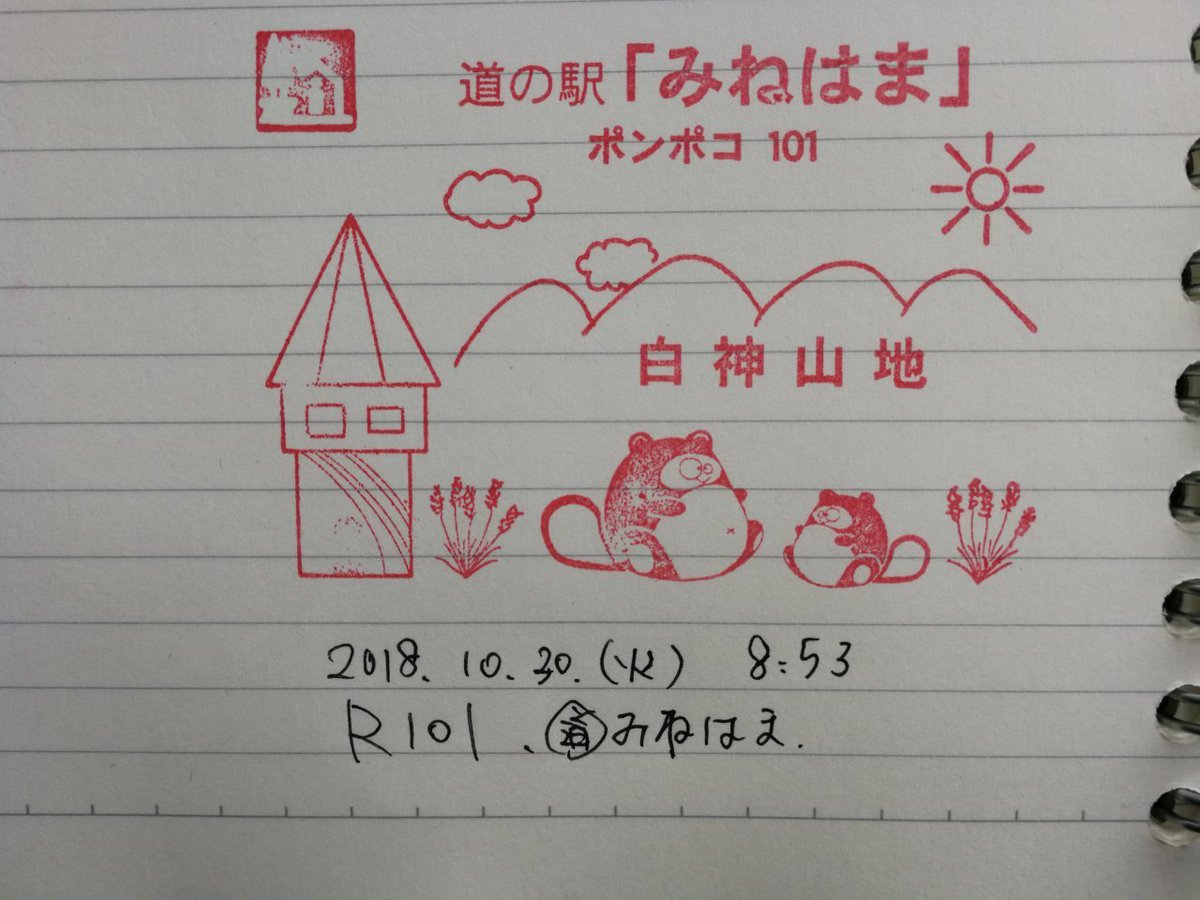 道の駅「みねはま」
ポンポコ 101
白神山地
2018. 10. 30. (火) 8:53
R101. 道みねはま.